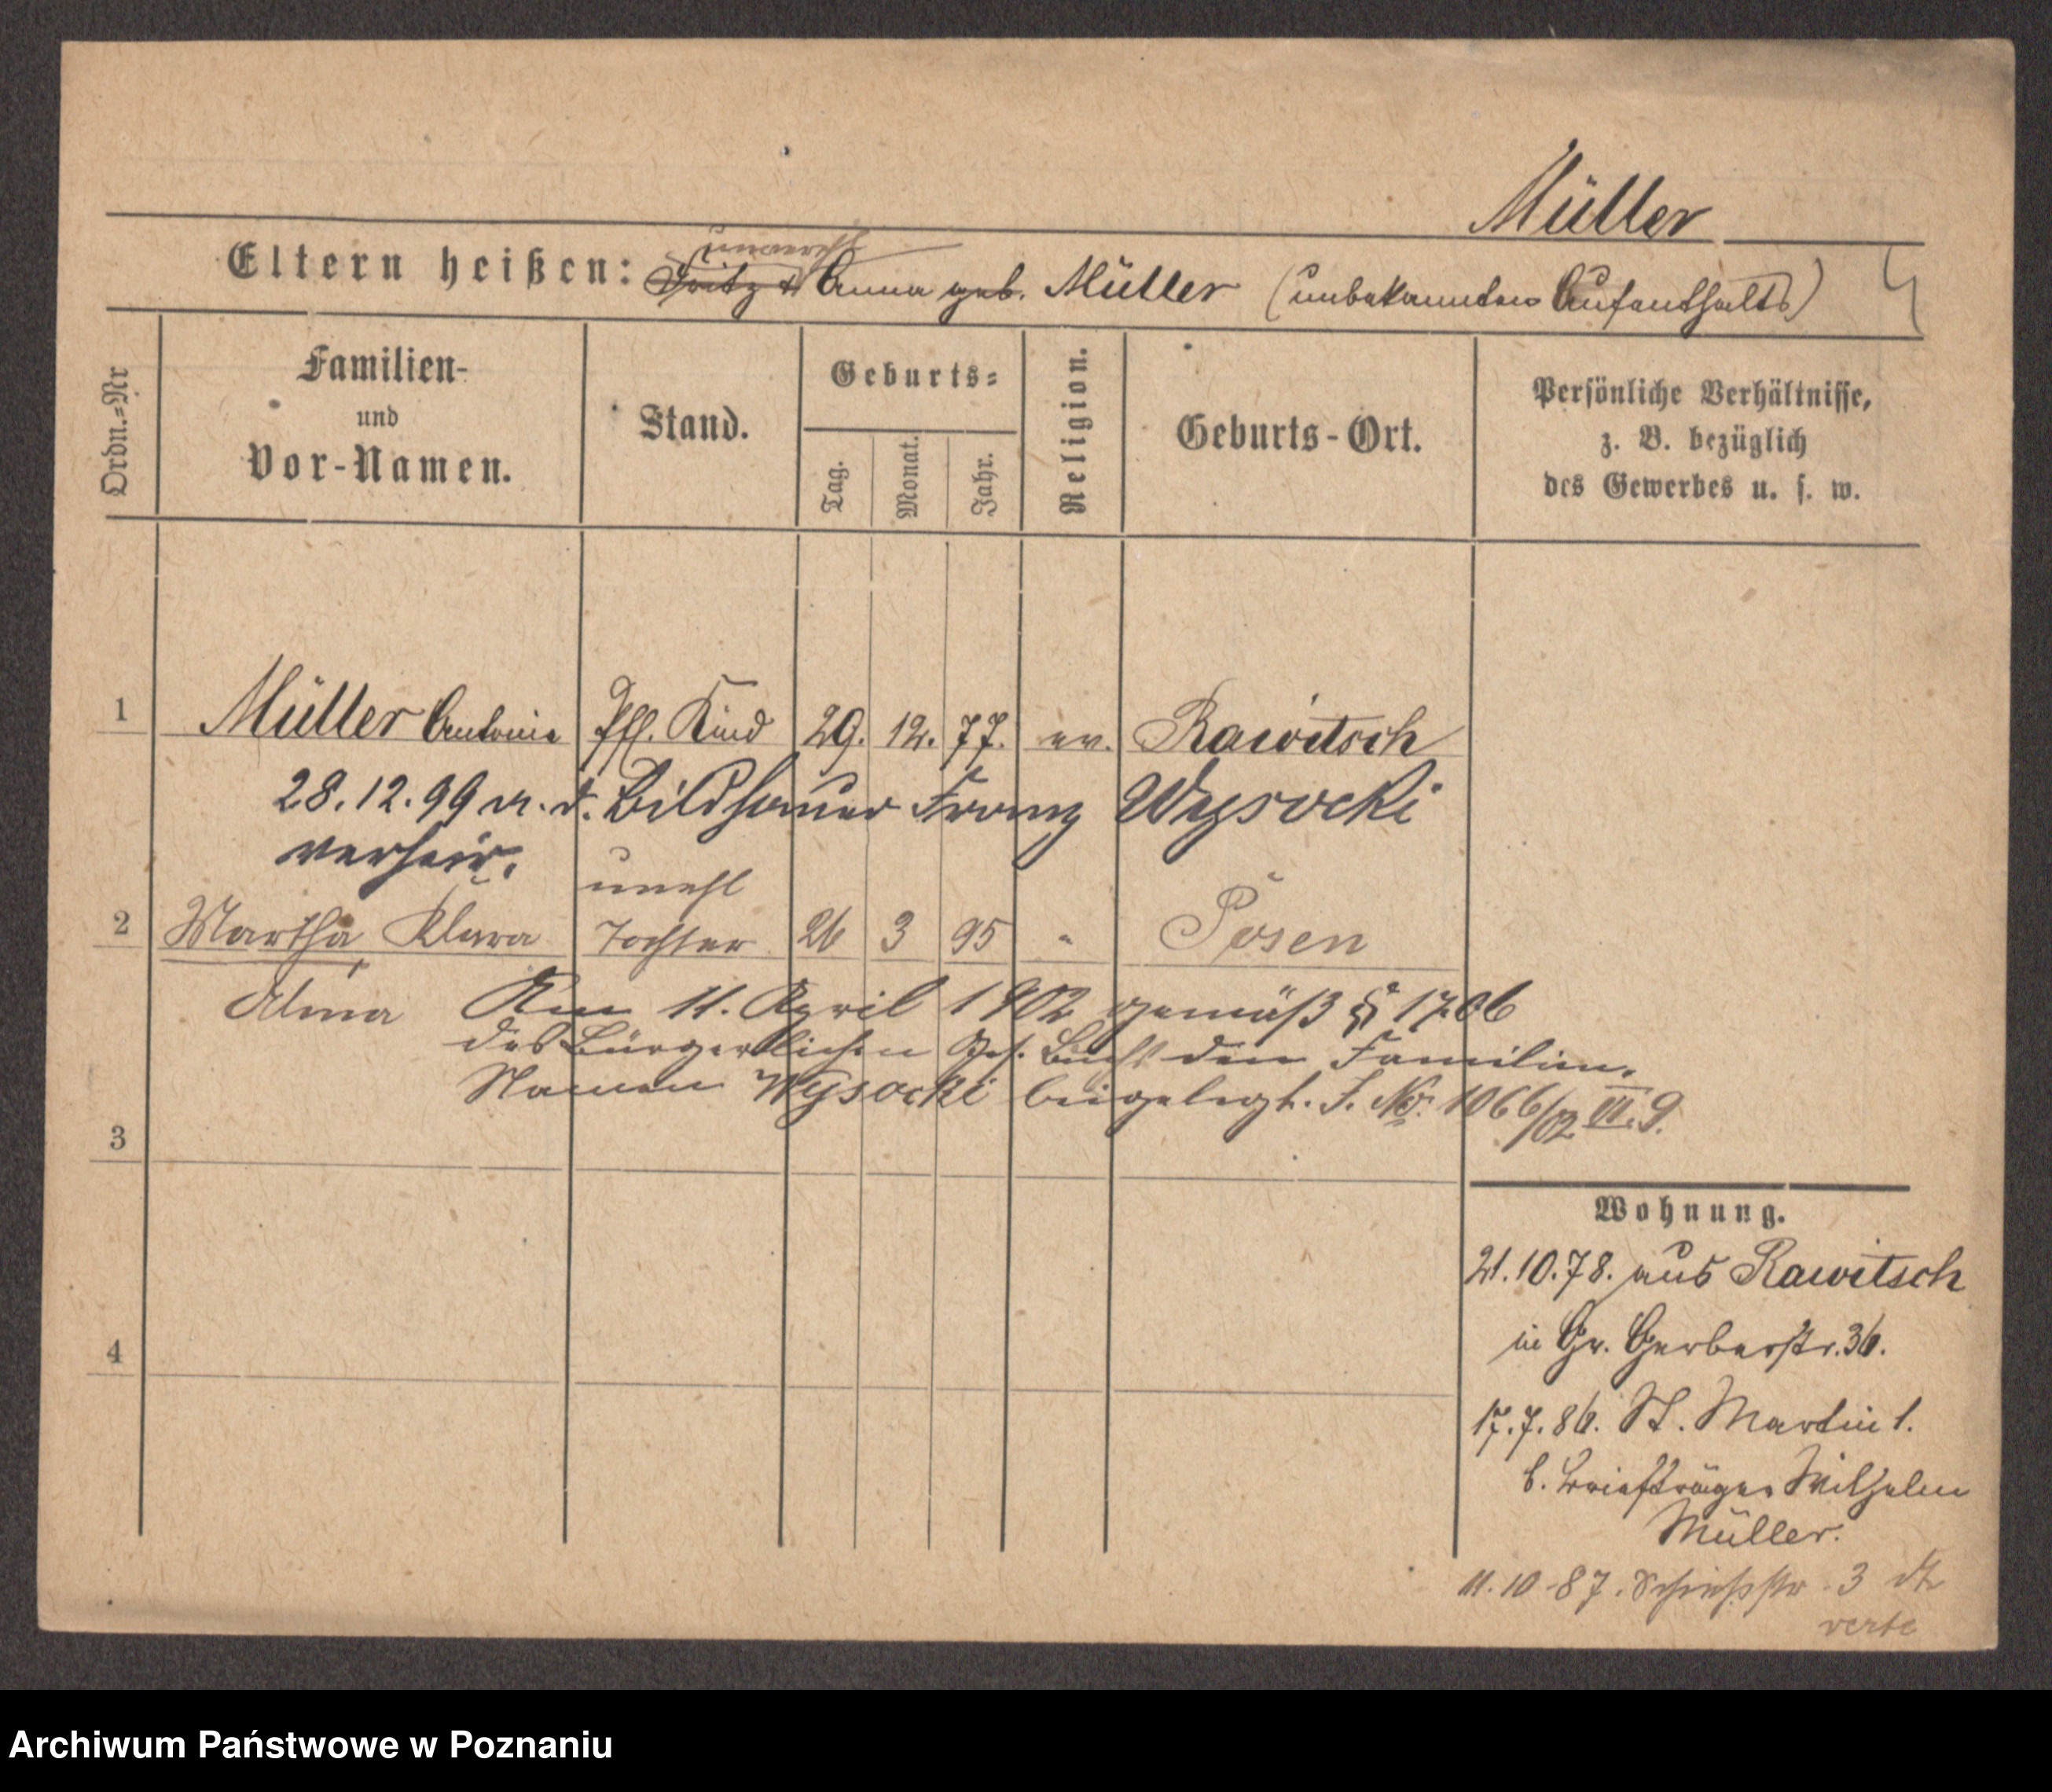 Müller
Eltern heißen: Fritz & Anna geb. Müller (unbekannten Aufenthalts)
Ordn.=Nr
Familien-
und
Vor-Namen.
Stand.
Geburts=
Tag.
Monat.
Jahr.
Religion.
Geburts-Ort.
Persönliche Verhältnisse,
z. B. bezüglich
des Gewerbes u. s. w.
1 Müller Antonie Pfl. Kind 29. 12. 77. ev. Rawitsch
28.12.99 m. d. Bildhauer Franz Wysocki
verheir.
unehl
2 Martha, Klara Tochter 26 3 95 " Posen
Alma Am 11. April 1902 gemäß § 1706
des Bürgerlichen Ges. Buchs den Familien-
Namen Wysocki beigelegt. J. No. 1066/02 VI. 9.
3
4
Wohnung.
21.10.78. aus Rawitsch
in Gr. Gerberstr. 36.
17.7.86. St. Martin 1.
b. Briefträger Wilhelm
Müller.
11.10.87. Schießstr. 3
verte
Archiwum Państwowe w Poznaniu